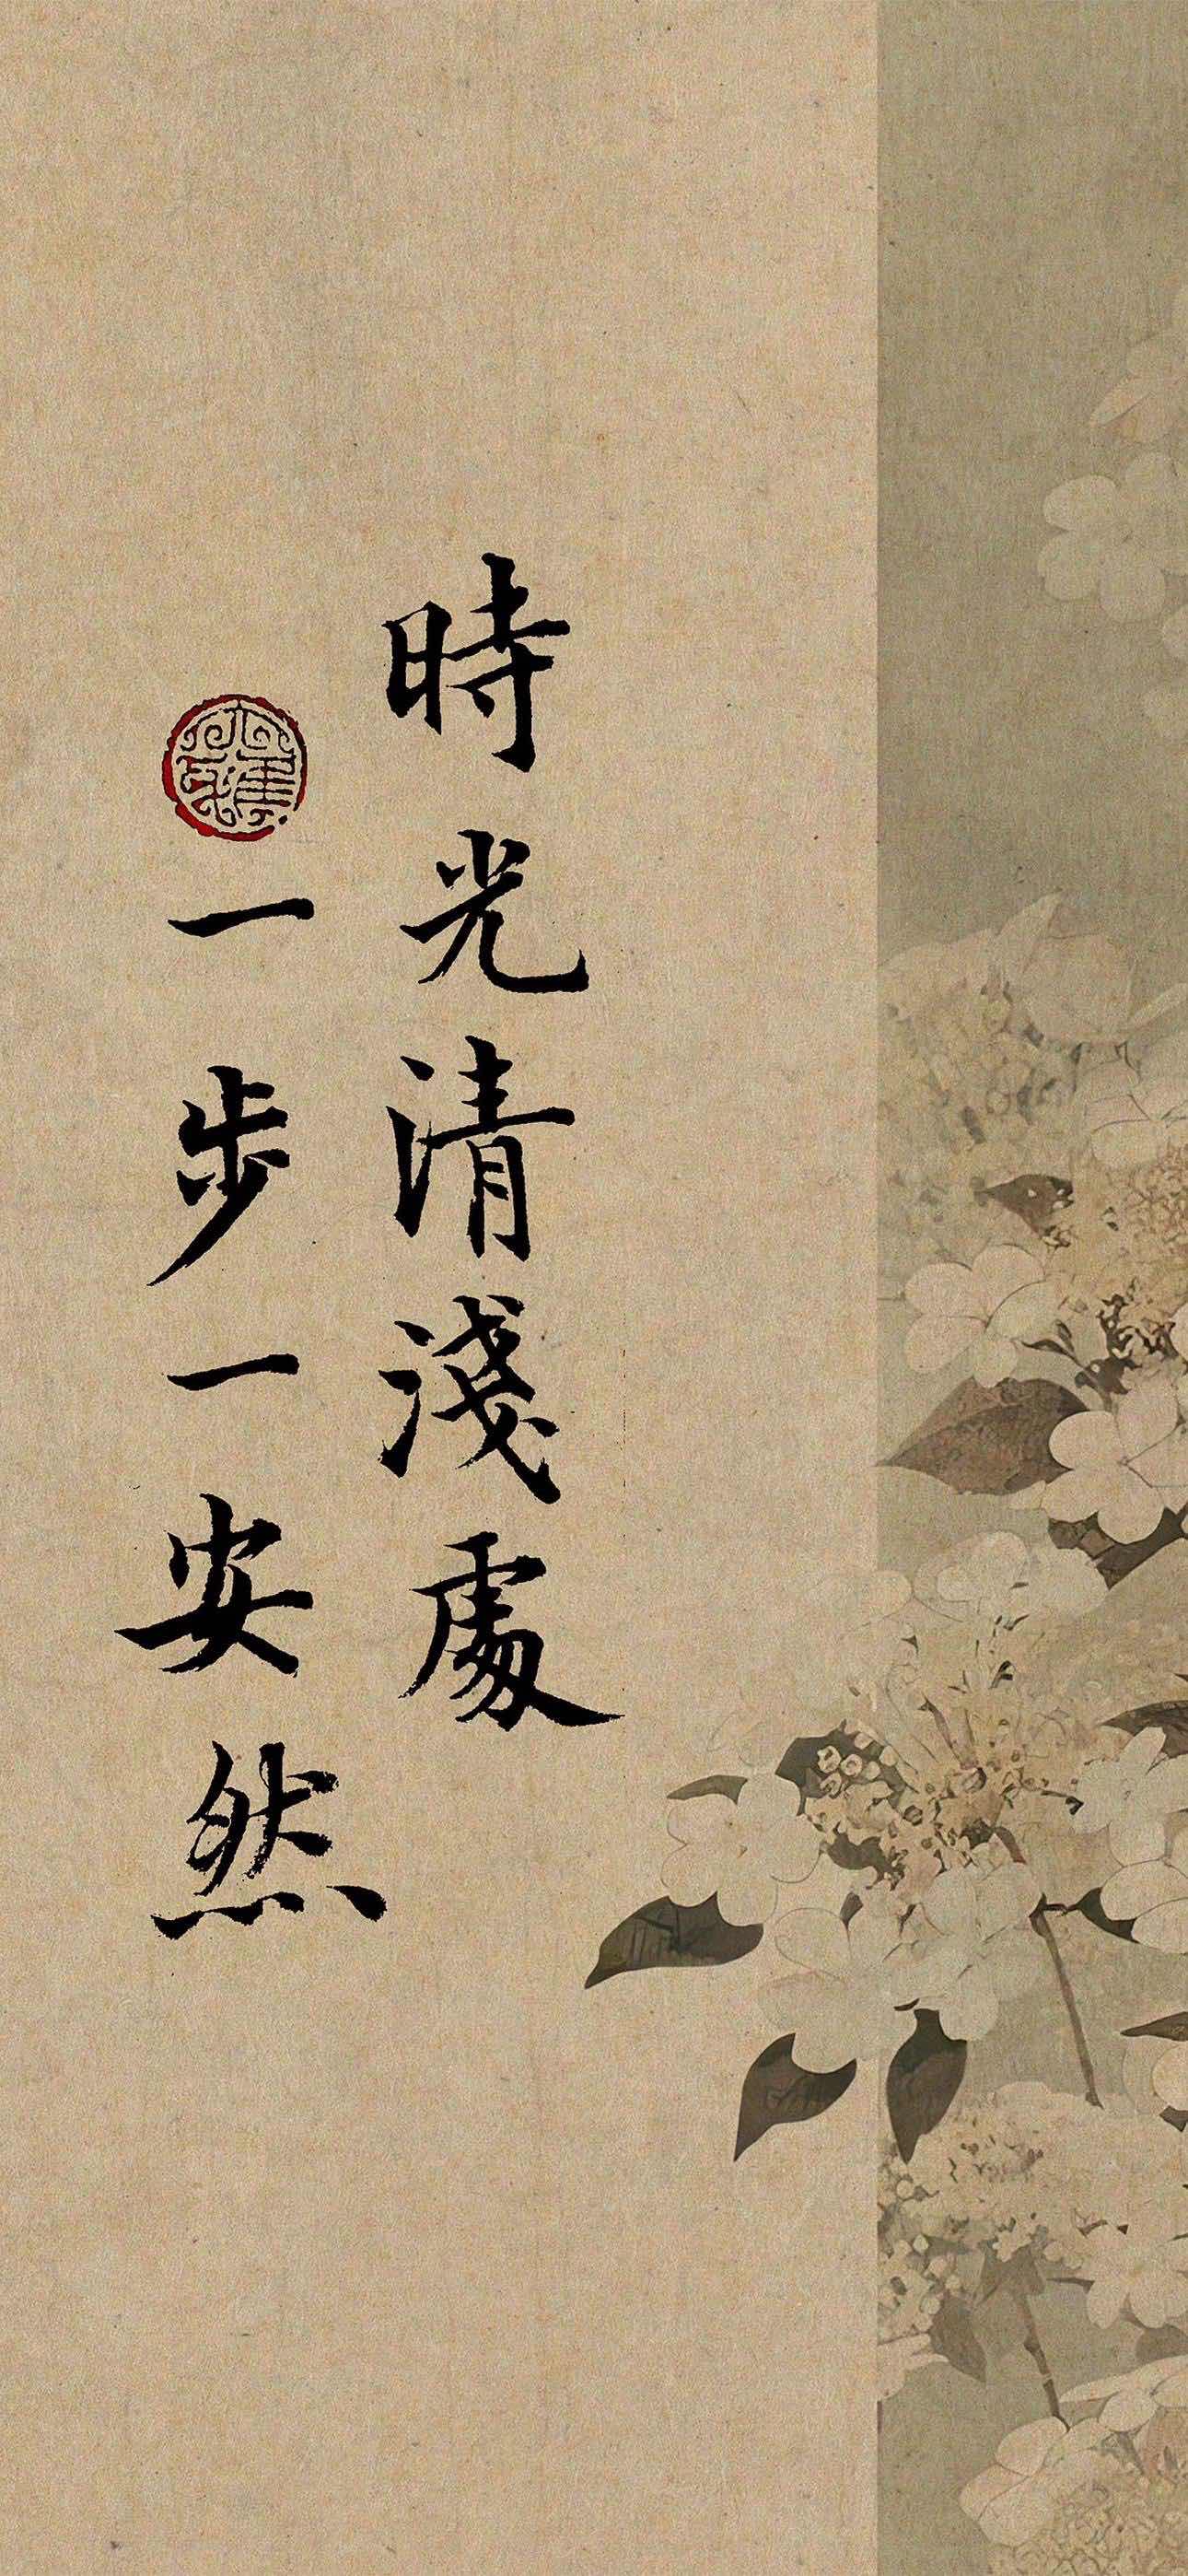 時光清淺處
一步一安然